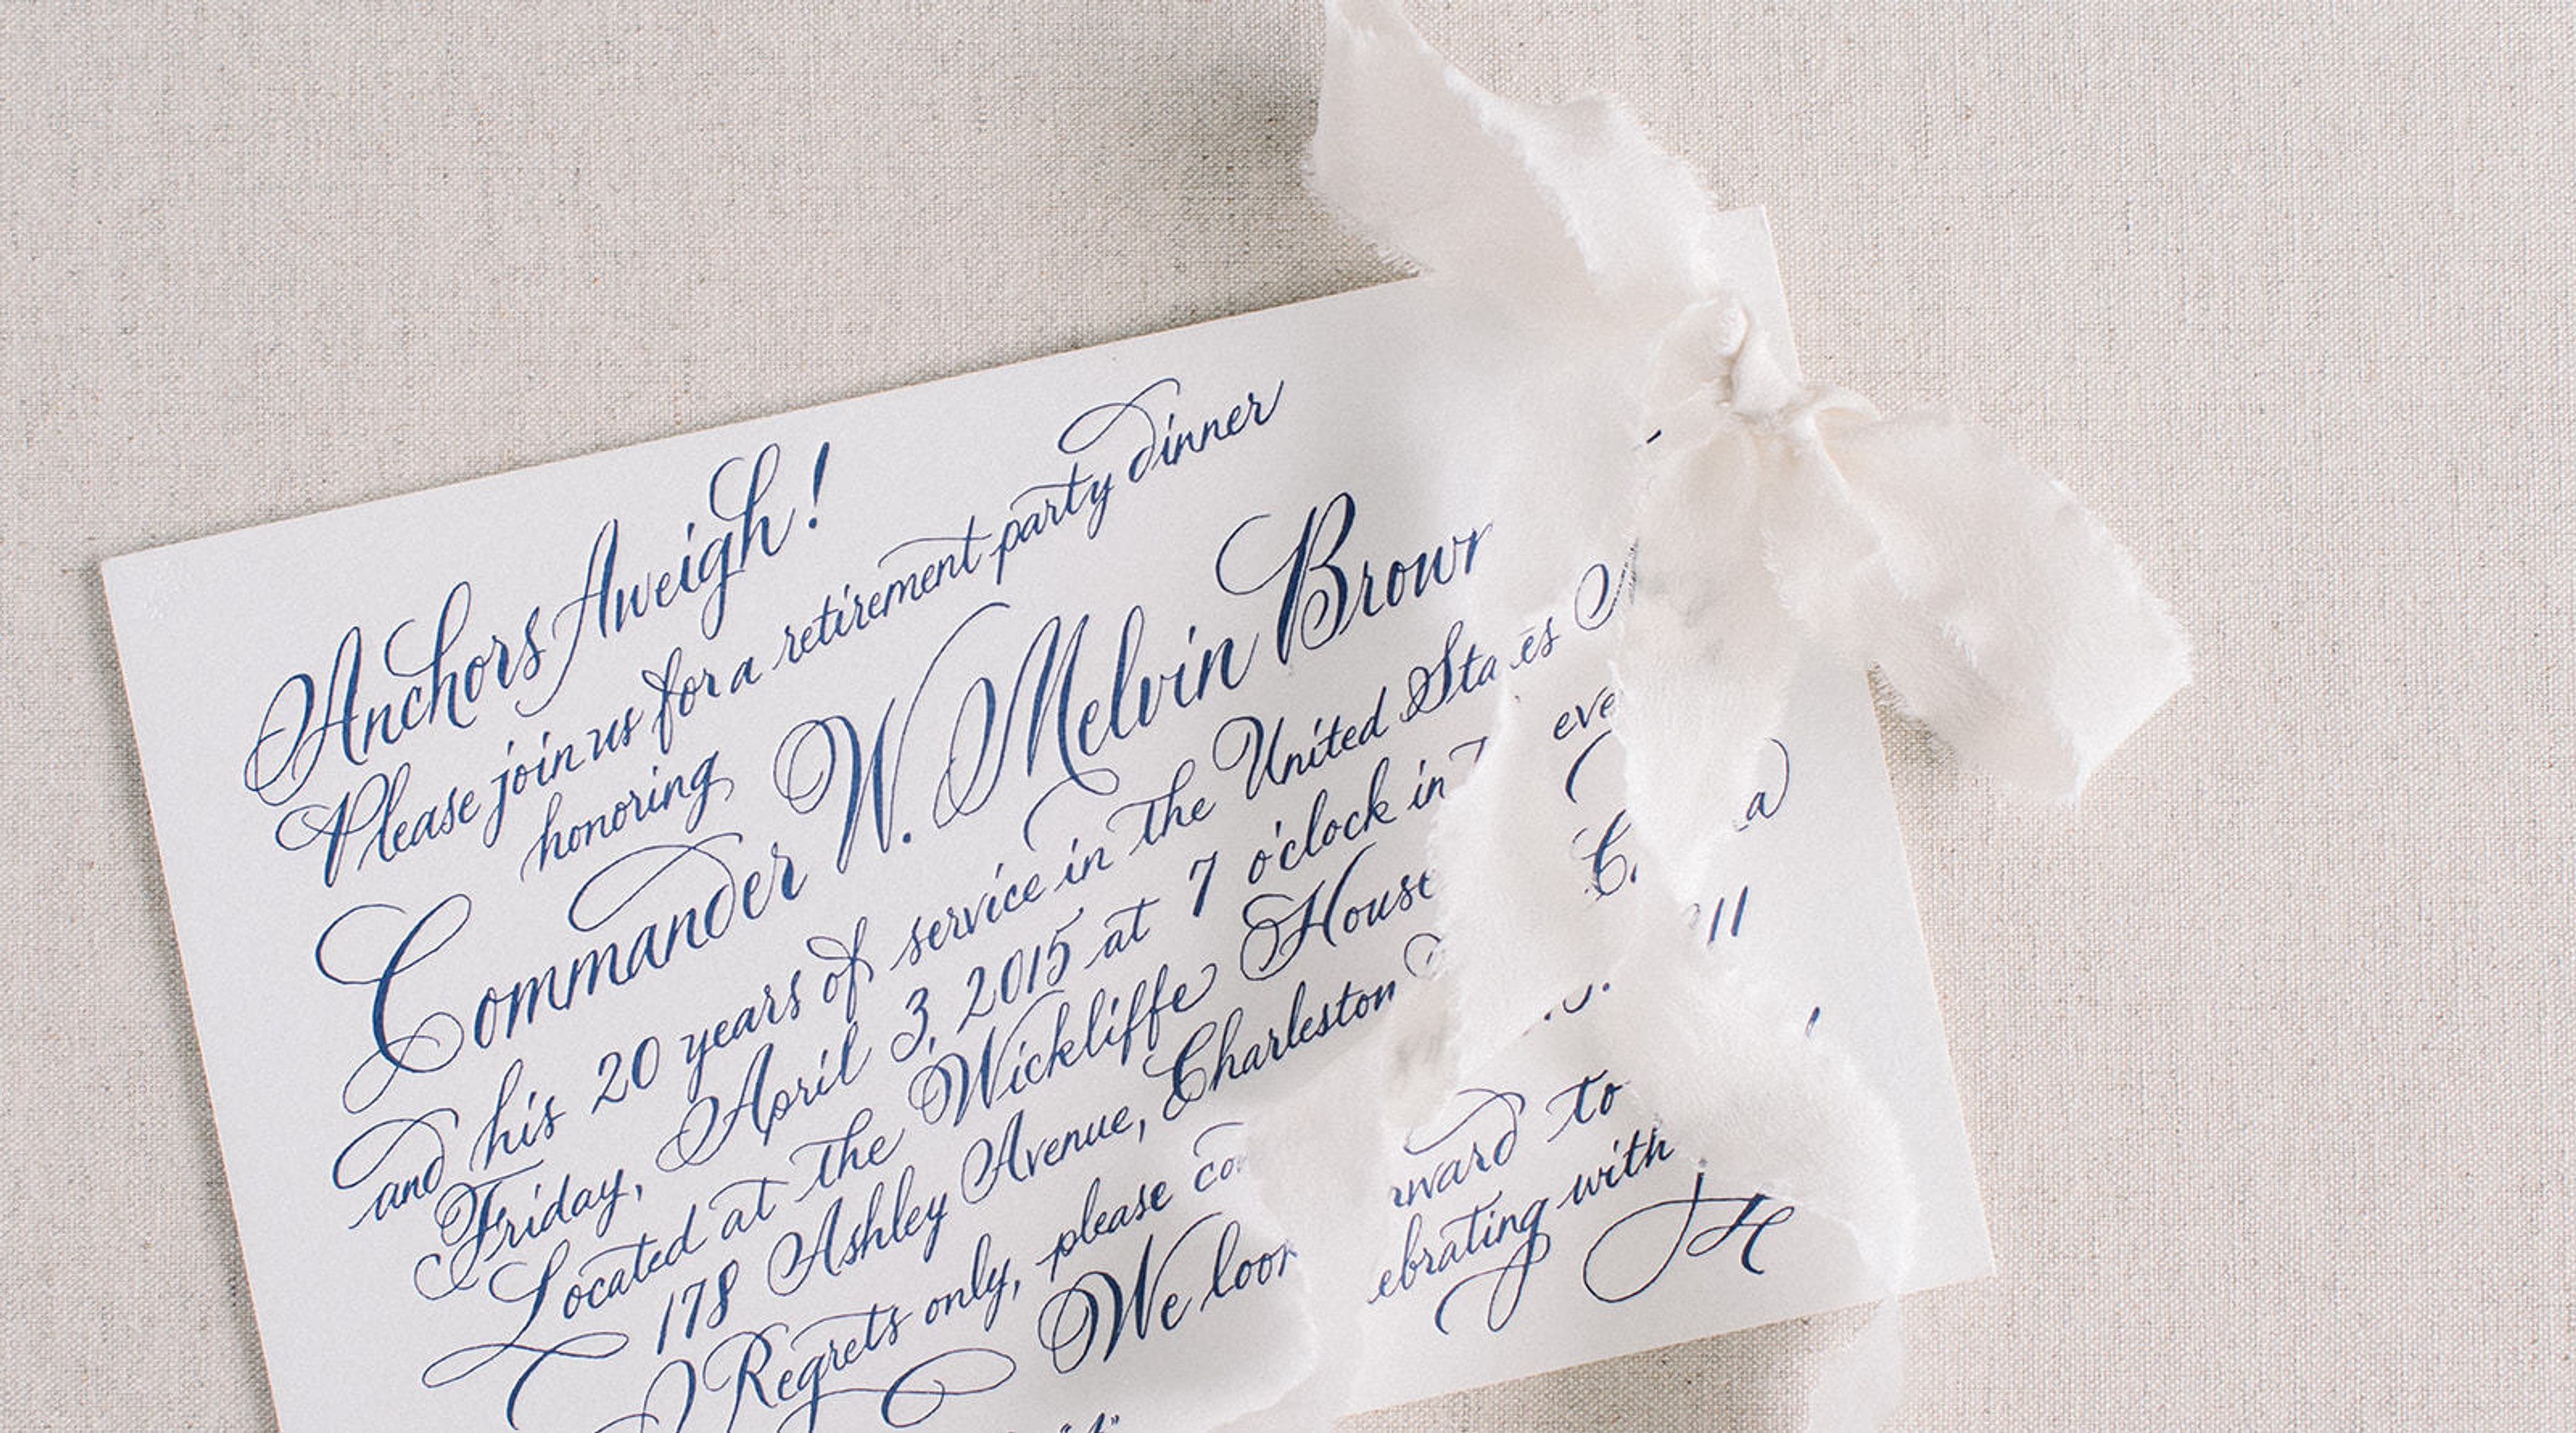 Anchors Aweigh!
Please join us for a retirement party dinner
honoring
Commander W. Melvin Brow
and his 20 years of service in the United States
Friday, April 3, 2015 at 7 o'clock in
Located at the Wickliffe House
178 Ashley Avenue, Charleston
Regrets only, please
We look
ward to
ebrating with